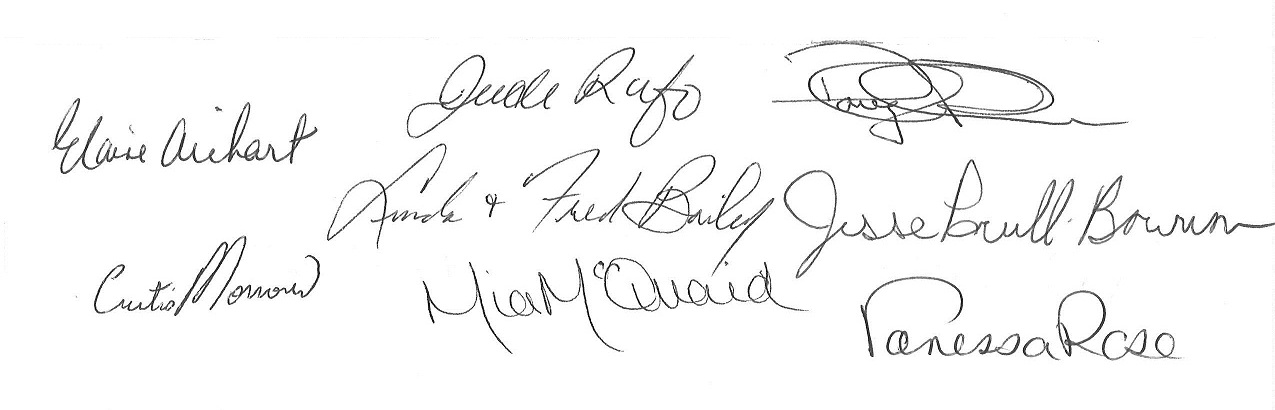 Jude Rufo
Elaine Airhart
Linda & Fred Bailey
Jesse Brull-Bowman
Curtis Morrow
Mia McQuaid
Vanessa Rose